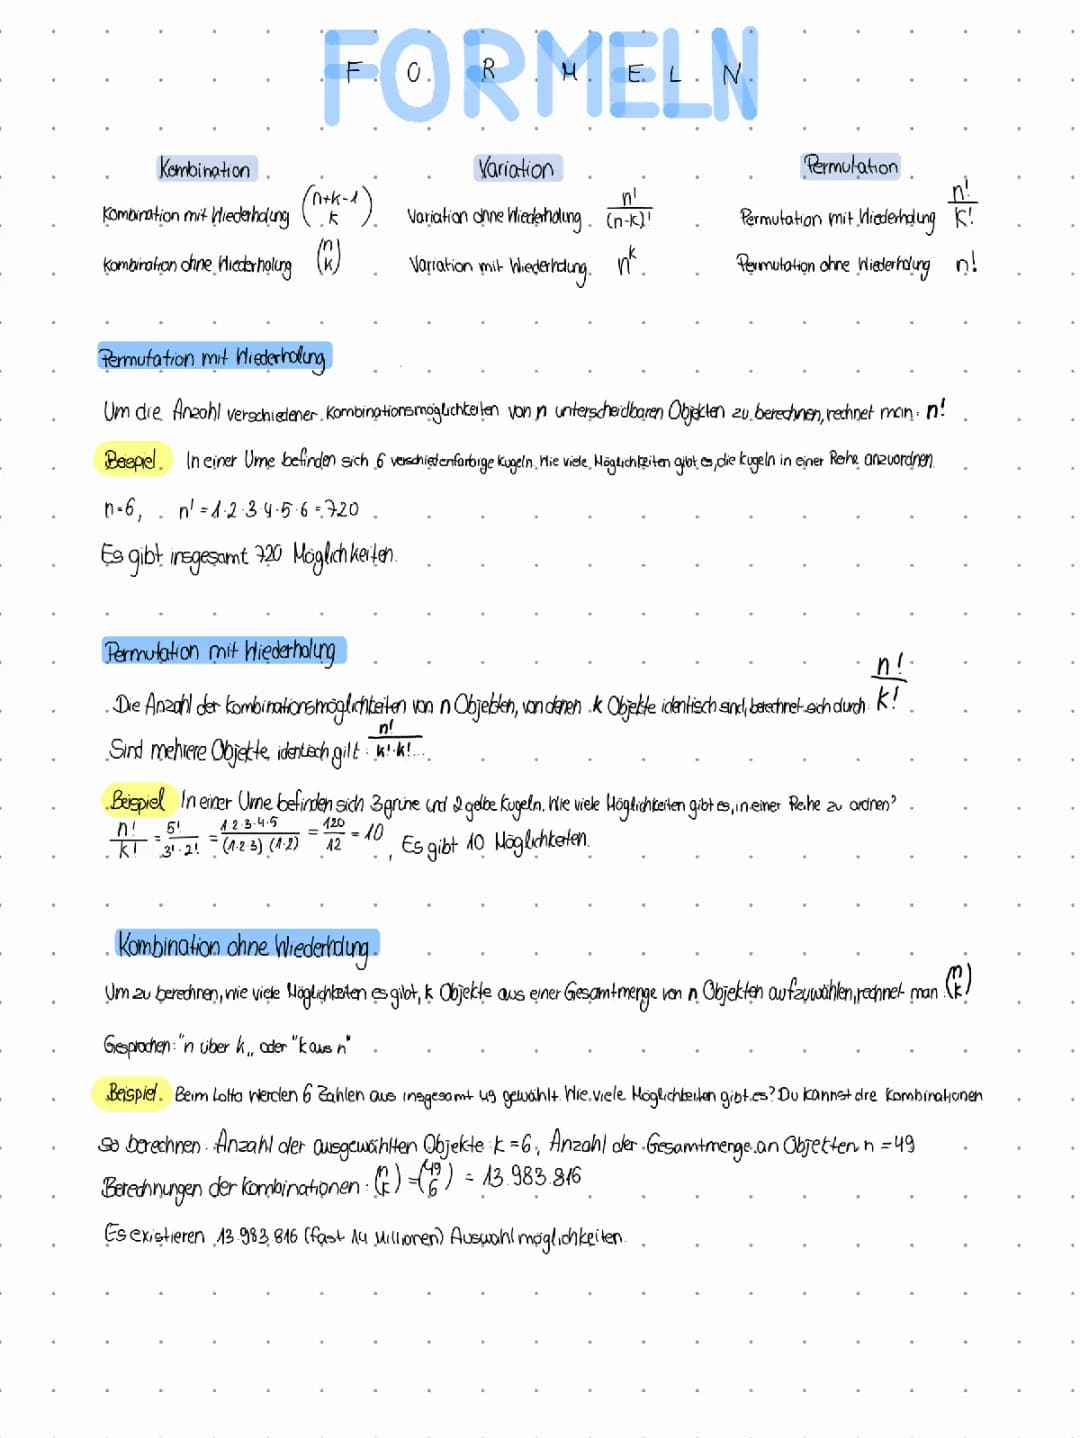 FORMELN
F O R M E L N
Kombination Variation Permutation
Kombination mit Wiederholung (n+k-1 k) Variation ohne Wiederholung n!/(n-k)! Permutation mit Wiederholung n!/k!
Kombination ohne Wiederholung (n k) Variation mit Wiederholung n^k Permutation ohne Wiederholung n!
Permutation mit Wiederholung
Um die Anzahl verschiedener Kombinationsmöglichkeiten von n unterscheidbaren Objekten zu berechnen, rechnet man: n!
Beispiel. In einer Urne befinden sich 6 verschiedenfarbige Kugeln. Wie viele Möglichkeiten gibt es, die Kugeln in einer Reihe anzuordnen.
n=6, n! = 1·2·3·4·5·6 = 720
Es gibt insgesamt 720 Möglichkeiten.
Permutation mit Wiederholung
Die Anzahl der Kombinationsmöglichkeiten von n Objekten, von denen k Objekte identisch sind, berechnet sich durch n!/k!
Sind mehrere Objekte identisch gilt: n!/k!·k!...
Beispiel In einer Urne befinden sich 3 grüne und 2 gelbe Kugeln. Wie viele Möglichkeiten gibt es, in einer Reihe zu ordnen?
n!/k! = 5!/3!·2! = 1·2·3·4·5/(1·2·3)(1·2) = 120/12 = 10, Es gibt 10 Möglichkeiten.
Kombination ohne Wiederholung.
Um zu berechnen, wie viele Möglichkeiten es gibt, k Objekte aus einer Gesamtmenge von n Objekten aufzuwählen, rechnet man (n k)
Gesprochen: "n über k,, oder "k aus n"
Beispiel. Beim Lotto werden 6 Zahlen aus insgesamt 49 gewählt. Wie viele Möglichkeiten gibt es? Du kannst die Kombinationen
so berechnen. Anzahl der ausgewählten Objekte: k = 6, Anzahl der Gesamtmenge an Objekten n = 49
Berechnungen der Kombinationen: (n k) = (49 6) = 13.983.816
Es existieren 13.983.816 (fast 14 Millionen) Auswahlmöglichkeiten.